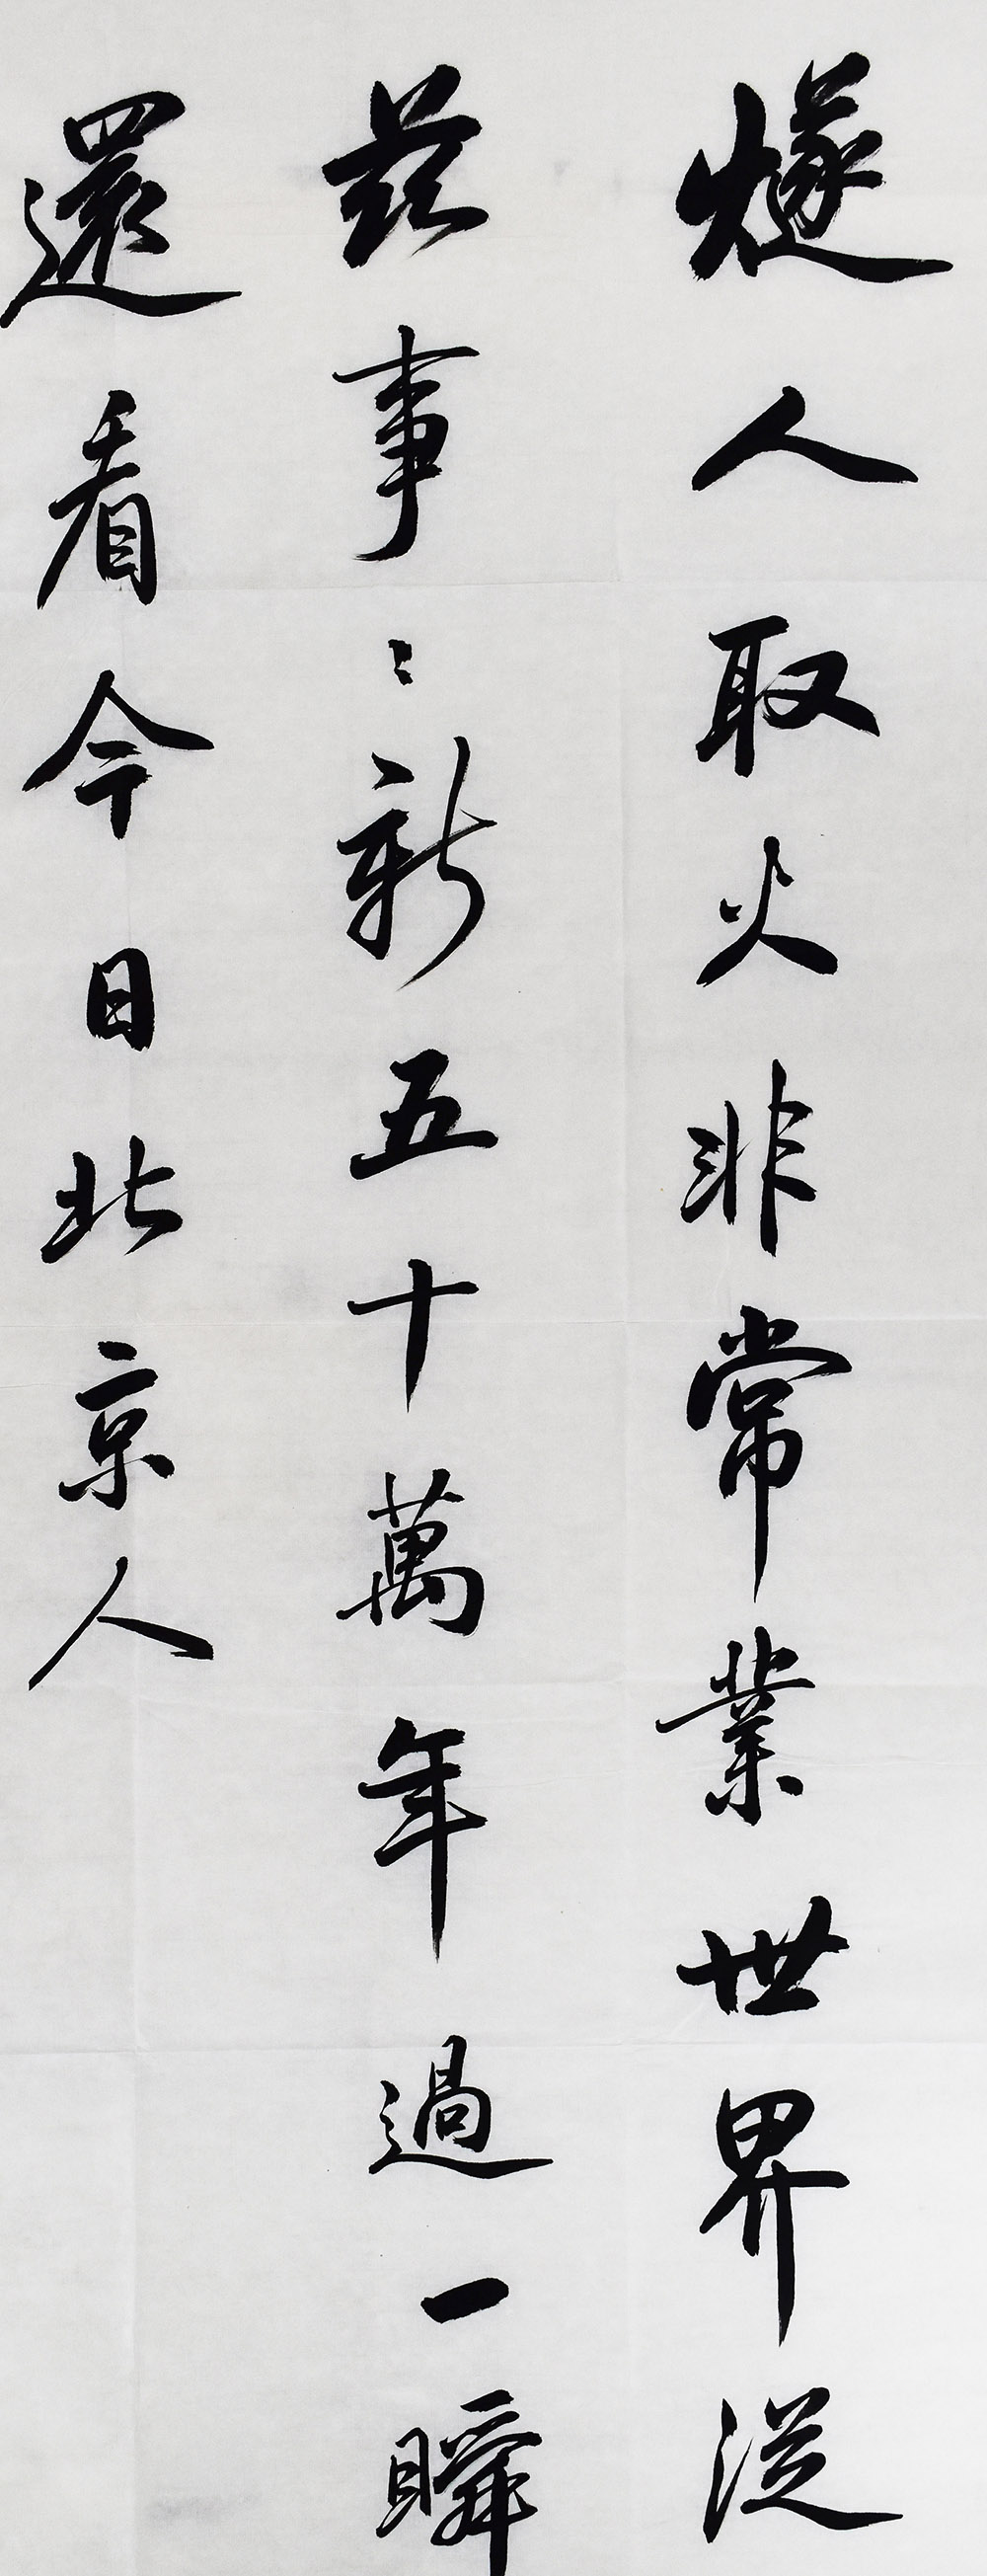 燧人取火非常業世界從
茲事〻新五十萬年過一瞬
還看今日北京人